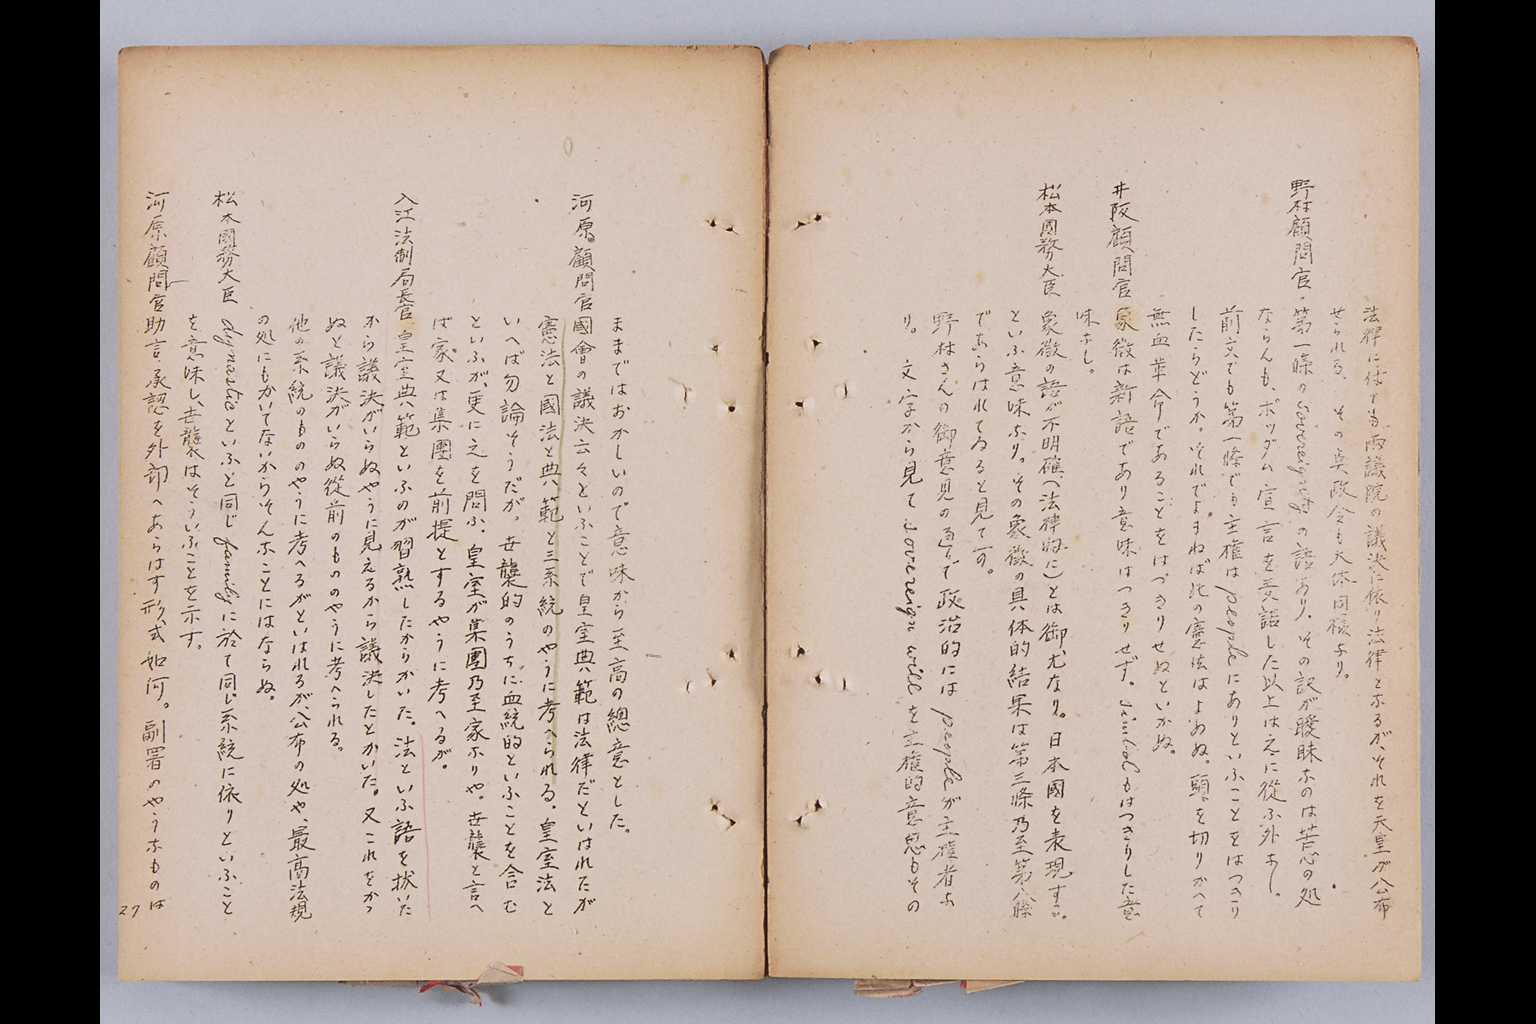 法律に付ても両議院の議決に依り法律となるが、それを天皇が公布
せられる、その点政令も大体同様なり。
野村顧問官 第一條の sovereign の語あり、その訳が曖昧なのは苦心の処
ならんも、ポツダム宣言を受諾した以上は之に從ふ外なし。
前文でも第一條でも主権は people にありといふことをはつきり
したらどうか。それでよまねば此の憲法はよめぬ。頭を切りかへて
無血革命であることをはつきりせぬといかぬ。
井阪顧問官 象徴は新語であり意味はつきりせず。 symbol もはつきりした意
味なし。
松本國務大臣 象徴の語が不明確(法律的に)とは御尤なり。日本國を表現す
といふ意味なり。その象徴の具体的結果は第三條乃至第八條
であらはれてゐると見て可。
野村さんの御意見の通りで政治的には people が主権者な
り。 文字から見て sovereign will を主権的意思もその
ままではおかしいので意味から至高の總意とした。
河原顧問官 國會の議決云々といふことで皇室典範は法律だといはれたが
憲法と國法と典範と三系統のやうに考へられる。皇室法と
いへば勿論そうだが。世襲的のうちに血統的といふことを含む
といふが、更に之を問ふ、皇室が集團乃至家なりや。世襲と言へ
ば家又は集團を前提とするやうに考へるが。
入江法制局長官 皇室典範といふのが習熟したからかいた。法といふ語を抜いた
から議決がいらぬやうに見えるから議決したとかいた。又これをかつ
ぬと議決がいらぬ從前のもののやうに考へられる。
他の系統のもののやうに考へるがといはれるが、公布の処や、最高法規
の処にもかいてないからそんなことにはならぬ。
松本國務大臣 dynastic といふと同じ family に於て同じ系統に依りといふこと
を意味し、世襲はそういふことを示す。
河原顧問官 助言承認を外部へあらはす形式如何。副署のやうなものは
27